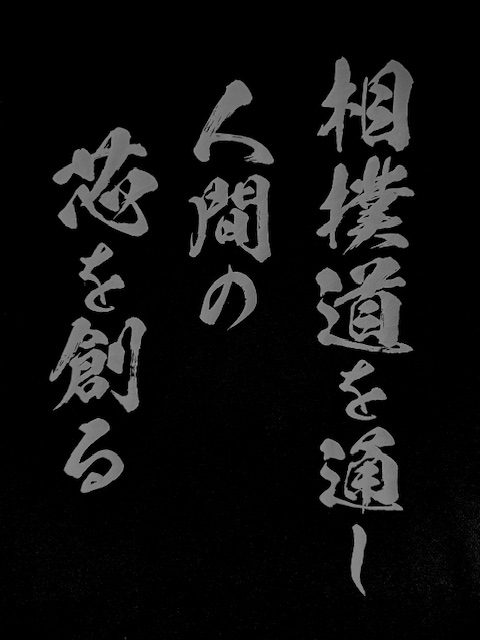 相撲道を通し
人間の
芯を創る